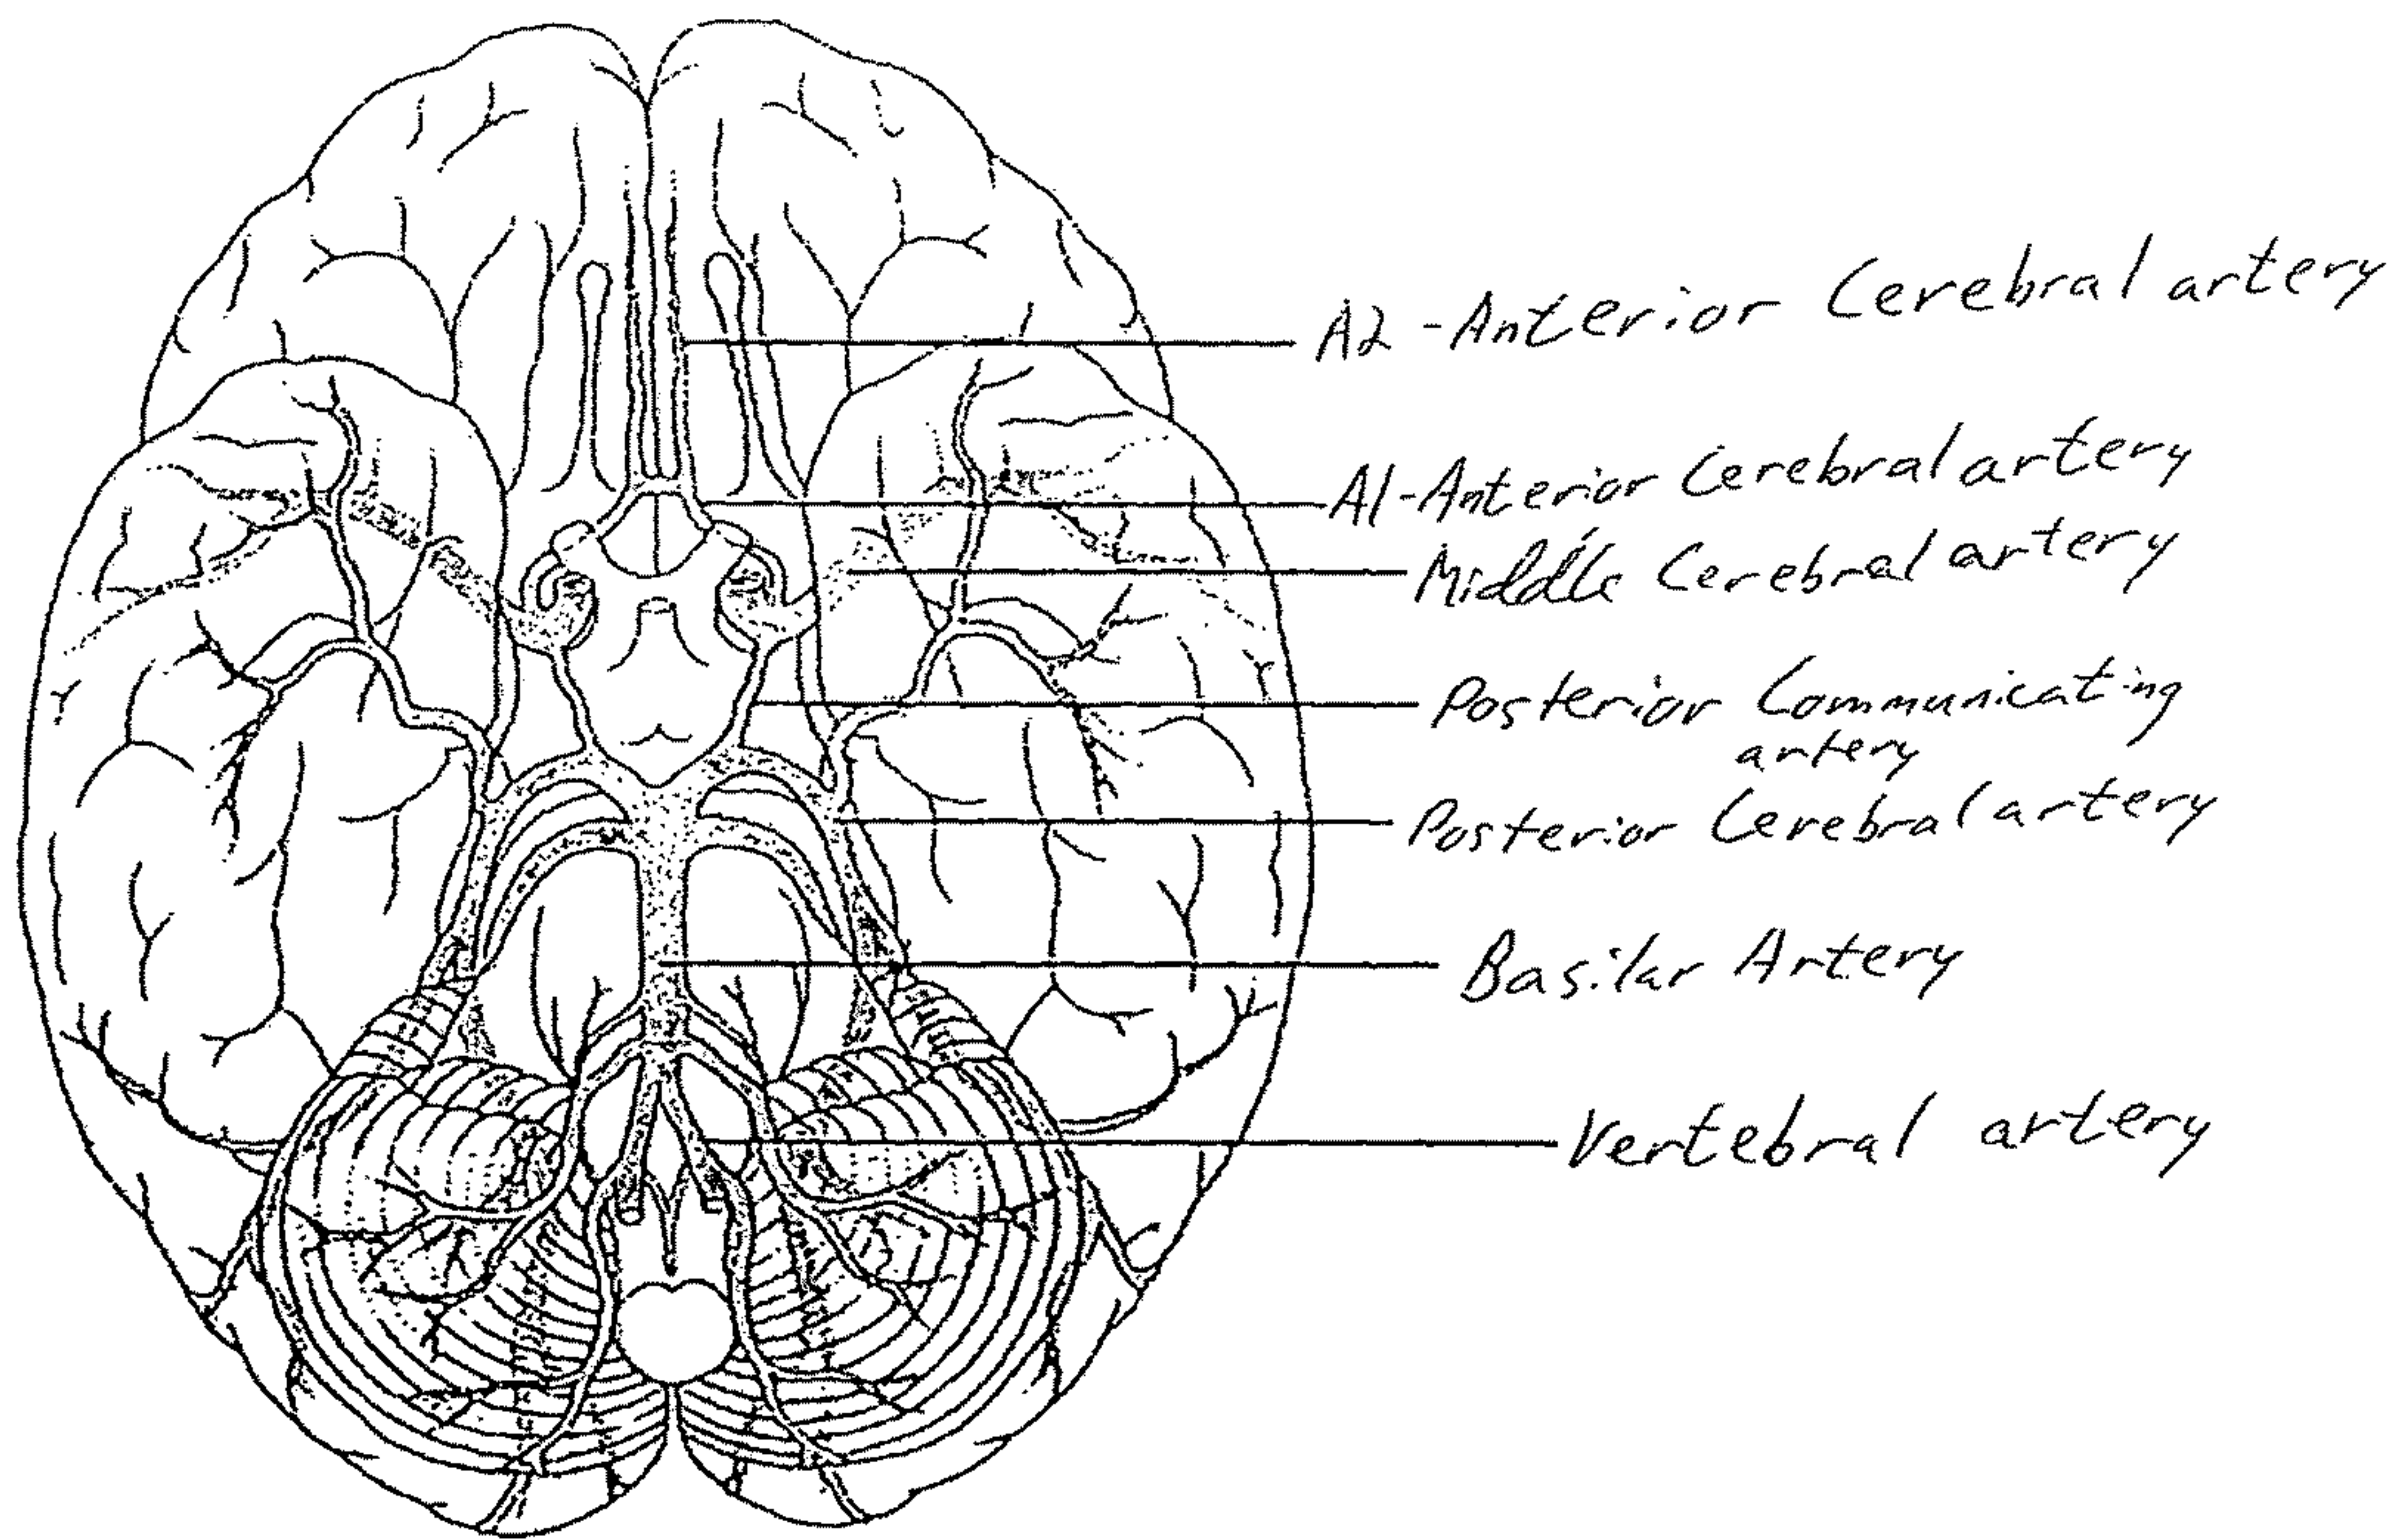 A2 - Anterior Cerebral artery
A1 - Anterior Cerebral artery
Middle Cerebral artery
Posterior Communicating
artery
Posterior Cerebral artery
Basilar Artery
Vertebral artery